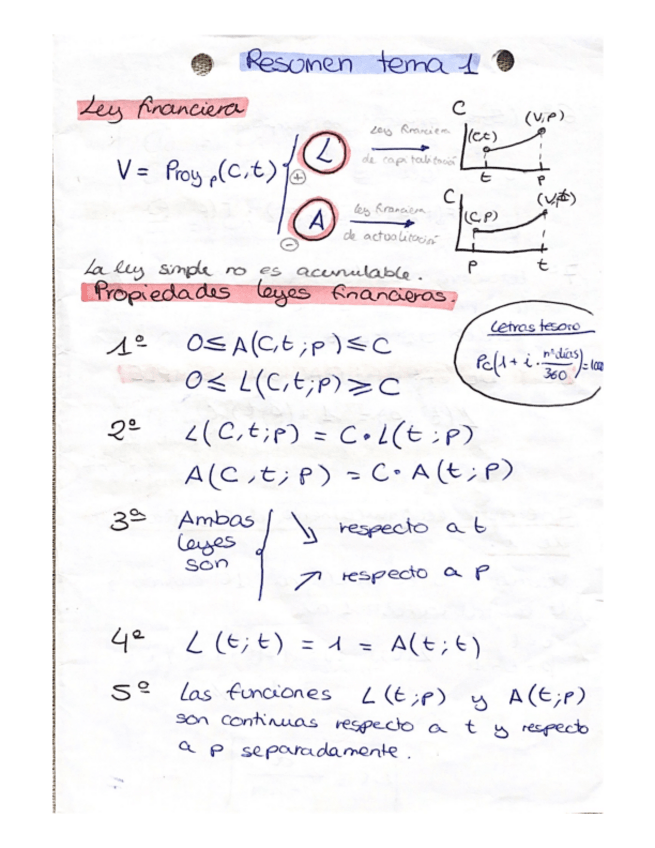 Resumen tema 1
Ley financiera
V = Proy p (C,t)
L
+
Ley financiera
de capitalización
C
(C,t)
(V,p)
t
p
A
-
Ley financiera
de actualización
C
(C,p)
p
t
La ley simple no es acumulable.
Propiedades leyes financieras.
Letras tesoro
Pc(1 + i · nº días/360) =
1º 0 ≤ A(C,t;p) ≤ C
0 ≤ L(C,t;p) ≥ C
2º L(C,t;p) = C · L(t;p)
A(C,t;p) = C · A(t;p)
3º Ambas leyes son
↘ respecto a t
↗ respecto a p
4º L(t;t) = 1 = A(t;t)
5º Las funciones L(t;p) y A(t;p)
son continuas respecto a t y respecto
a p separadamente.